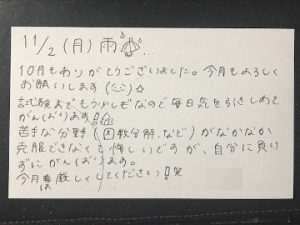 11/2(月)雨☂...
10月もありがとうございました。今月もよろしく
お願いします(☺)☆
試験までもう少しなので毎日気を引きしめて
がんばります!!
苦手な分野(因数分解など)がなかなか
克服できなくて悔しいですが、自分に負け
ずにがんばります。
今月は厳しくしてください!!笑